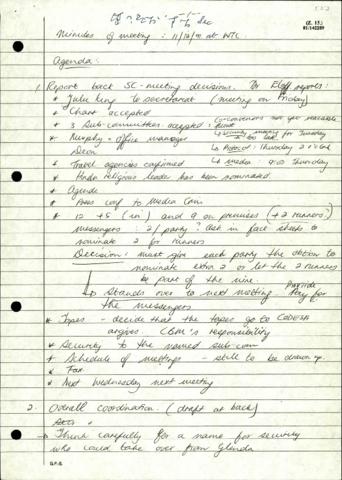 (Z. 15)
81/140289
Minutes of meeting : 11/12/91 at WTC
Agenda :
1. Report back SC-meeting decisions. Dr Eloff reports:
* Julie King to secretariat (meeting on Friday)
* Chart accepted
* 3 Sub-committees accepted :
* Murphy - office manager
Deon
↳ Security meeting for Tuesday
↳ Protocol : Thursday
* Travel agencies confirmed
↳ Media : 9:00 Thursday
* Hindu religious leader has been nominated.
* Agenda
* Press conf to Media Com
* 12 + 5 (in) and 9 on premises (+ 2 runners)
messengers : 2/party : Ask in fact sheets to
nominate 2 for runners
Decision : must give each party the option to
nominate extra 2 or let the 2 runners
be part of the nine.
↳ Stands over to next meeting.
Pay for
the messengers
* Tapes - decide that the tapes go to CODESA
CBM's responsibility
* Security to the named sub-com
* Schedule of meetings - still to be drawn up.
* Fax
* Next Wednesday next meeting
2. Overall coordination : (draft at back)
→ Think carefully for a name for security
who could take over from Glenda